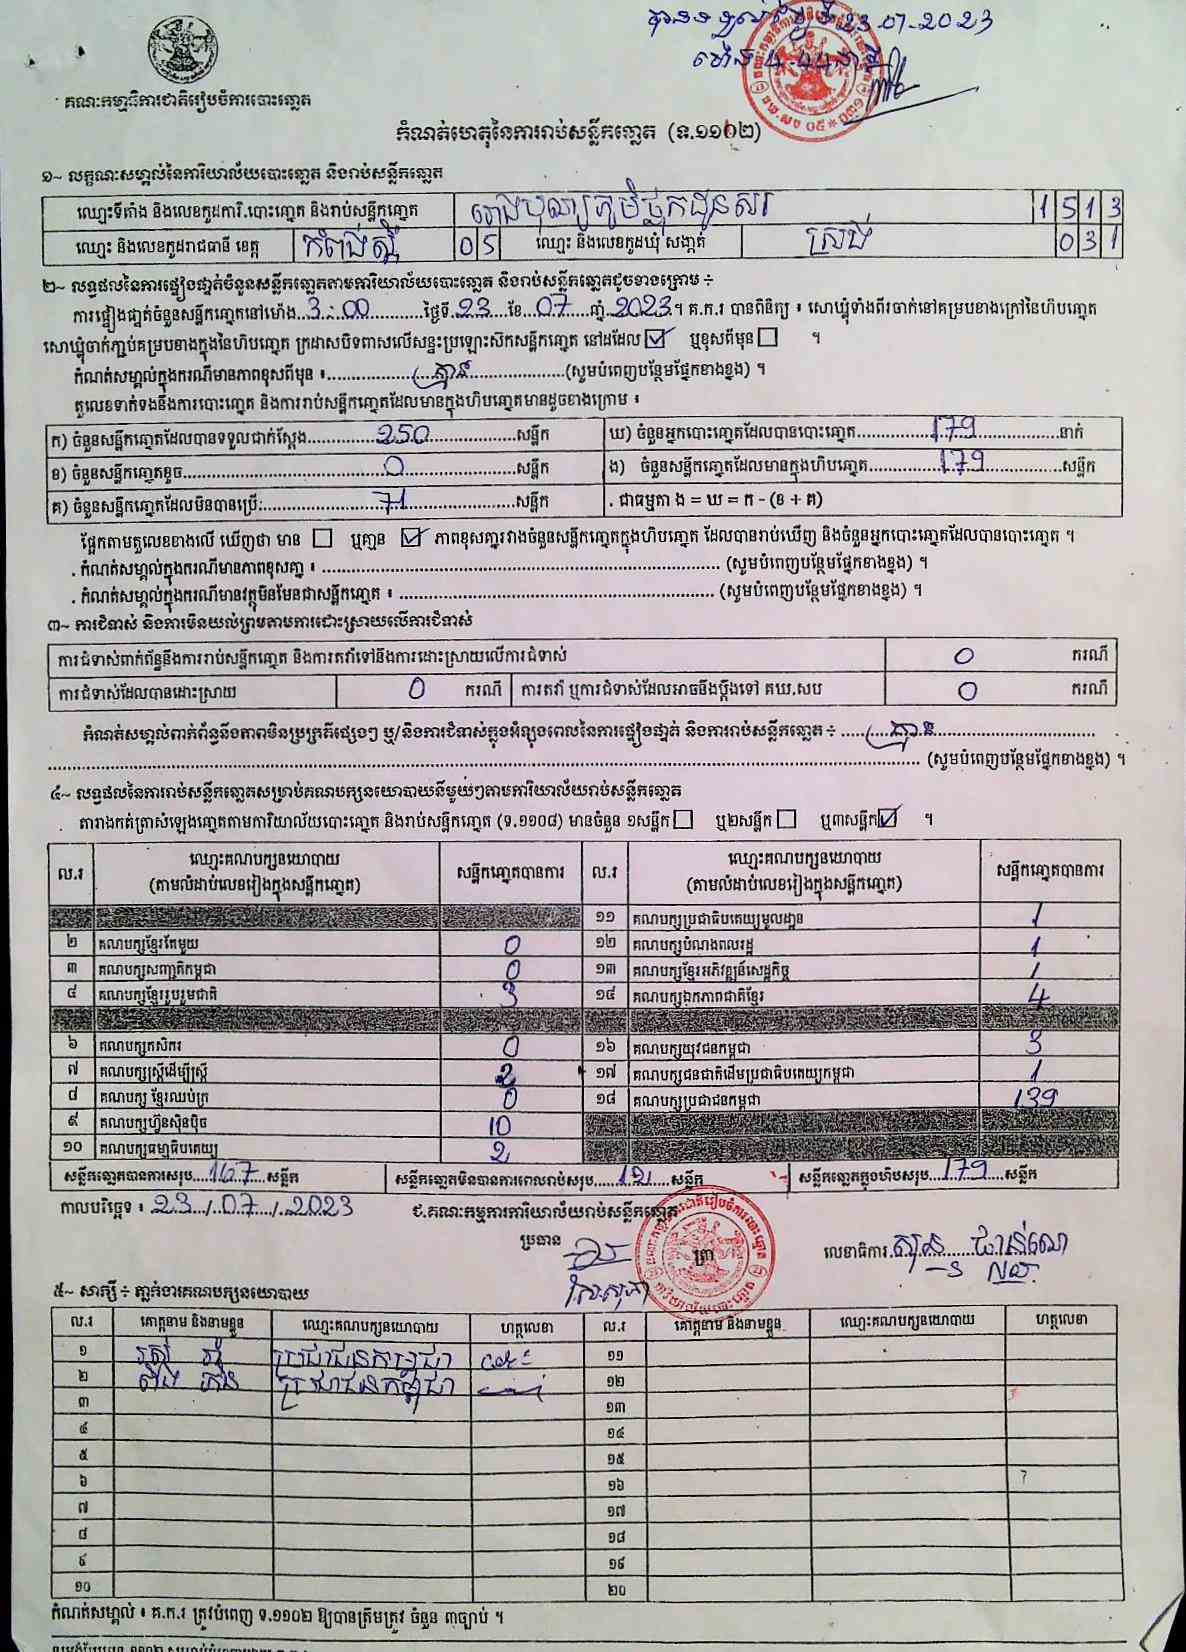 បានទទួលថ្ងៃទី 23.07.2023
ម៉ោង 4.44 នាទី
គណៈកម្មាធិការជាតិរៀបចំការបោះឆ្នោត
កំណត់ហេតុនៃការរាប់សន្លឹកឆ្នោត (ទ.១១០២)
១~ លក្ខណៈសម្គាល់នៃការិយាល័យបោះឆ្នោត និងរាប់សន្លឹកឆ្នោត
ឈ្មោះទីតាំង និងលេខកូដការិ.បោះឆ្នោត និងរាប់សន្លឹកឆ្នោត 1 5 1 3
ឈ្មោះ និងលេខកូដរាជធានី ខេត្ត កំពង់ស្ពឺ 0 5 ឈ្មោះ និងលេខកូដឃុំ សង្កាត់ ស្រង់ 0 3 1
២~ លទ្ធផលនៃការផ្ទៀងផ្ទាត់ចំនួនសន្លឹកឆ្នោតតាមការិយាល័យបោះឆ្នោត និងរាប់សន្លឹកឆ្នោតដូចខាងក្រោម ÷
ការផ្ទៀងផ្ទាត់ចំនួនសន្លឹកឆ្នោតនៅម៉ោង 3:00 ថ្ងៃទី 23 ខែ 07 ឆ្នាំ 2023 ។ គ.ក.រ បានពិនិត្យ ៖ សោឃ្លុំទាំងពីរចាក់នៅគម្របខាងក្រៅនៃហិបឆ្នោត
សោឃ្លុំចាក់ភ្ជាប់គម្របខាងក្នុងនៃហិបឆ្នោត ក្រដាសបិទពាសលើសន្ទះប្រឡោះស៊កសន្លឹកឆ្នោត នៅដដែល ☑ ឬខុសពីមុន ☐ ។
កំណត់សម្គាល់ក្នុងករណីមានភាពខុសពីមុន ៖ គ្មាន (សូមបំពេញបន្ថែមផ្នែកខាងខ្នង) ។
តួលេខទាក់ទងនឹងការបោះឆ្នោត និងការរាប់សន្លឹកឆ្នោតដែលមានក្នុងហិបឆ្នោតមានដូចខាងក្រោម ៖
ក) ចំនួនសន្លឹកឆ្នោតដែលបានទទួលជាក់ស្តែង 250 សន្លឹក ឃ) ចំនួនអ្នកបោះឆ្នោតដែលបានបោះឆ្នោត 179 នាក់
ខ) ចំនួនសន្លឹកឆ្នោតខូច 0 សន្លឹក ង) ចំនួនសន្លឹកឆ្នោតដែលមានក្នុងហិបឆ្នោត 179 សន្លឹក
គ) ចំនួនសន្លឹកឆ្នោតដែលមិនបានប្រើ: 71 សន្លឹក . ជាធម្មតា ង = ឃ = ក - (ខ + គ)
ផ្អែកតាមតួលេខខាងលើ ឃើញថា មាន ☐ ឬគ្មាន ☑ ភាពខុសគ្នារវាងចំនួនសន្លឹកឆ្នោតក្នុងហិបឆ្នោត ដែលបានរាប់ឃើញ និងចំនួនអ្នកបោះឆ្នោតដែលបានបោះឆ្នោត ។
. កំណត់សម្គាល់ក្នុងករណីមានភាពខុសគ្នា ៖ (សូមបំពេញបន្ថែមផ្នែកខាងខ្នង) ។
. កំណត់សម្គាល់ក្នុងករណីមានវត្ថុមិនមែនជាសន្លឹកឆ្នោត ៖ (សូមបំពេញបន្ថែមផ្នែកខាងខ្នង) ។
៣~ ការជំទាស់ និងការមិនយល់ព្រមតាមការដោះស្រាយលើការជំទាស់
ការជំទាស់ពាក់ព័ន្ធនឹងការរាប់សន្លឹកឆ្នោត និងការតវ៉ាទៅនឹងការដោះស្រាយលើការជំទាស់ 0 ករណី
ការជំទាស់ដែលបានដោះស្រាយ 0 ករណី ការតវ៉ា ឬការជំទាស់ដែលអាចនឹងប្តឹងទៅ គឃ.សប 0 ករណី
កំណត់សម្គាល់ពាក់ព័ន្ធនឹងភាពមិនប្រក្រតីផ្សេងៗ ឬ/និងការជំទាស់ក្នុងអំឡុងពេលនៃការផ្ទៀងផ្ទាត់ និងការរាប់សន្លឹកឆ្នោត ÷ គ្មាន
(សូមបំពេញបន្ថែមផ្នែកខាងខ្នង) ។
៤~ លទ្ធផលនៃការរាប់សន្លឹកឆ្នោតសម្រាប់គណបក្សនយោបាយនីមួយៗតាមការិយាល័យរាប់សន្លឹកឆ្នោត
តារាងកត់ត្រាសំឡេងឆ្នោតតាមការិយាល័យបោះឆ្នោត និងរាប់សន្លឹកឆ្នោត (ទ.១១០៨) មានចំនួន ១សន្លឹក ☐ ឬ២សន្លឹក ☐ ឬ៣សន្លឹក ☑ ។
ល.រ ឈ្មោះគណបក្សនយោបាយ (តាមលំដាប់លេខរៀងក្នុងសន្លឹកឆ្នោត) សន្លឹកឆ្នោតបានការ ល.រ ឈ្មោះគណបក្សនយោបាយ (តាមលំដាប់លេខរៀងក្នុងសន្លឹកឆ្នោត) សន្លឹកឆ្នោតបានការ
១១ គណបក្សប្រជាធិបតេយ្យមូលដ្ឋាន 1
២ គណបក្សខ្មែរតែមួយ 0 ១២ គណបក្សបំណងពលរដ្ឋ 1
៣ គណបក្សសញ្ជាតិកម្ពុជា 0 ១៣ គណបក្សខ្មែរអភិវឌ្ឍន៍សេដ្ឋកិច្ច 1
៤ គណបក្សខ្មែររួបរួមជាតិ 3 ១៤ គណបក្សឯកភាពជាតិខ្មែរ 4
៦ គណបក្សកសិករ 0 ១៦ គណបក្សយុវជនកម្ពុជា 3
៧ គណបក្សស្ត្រីដើម្បីស្ត្រី 2 ១៧ គណបក្សជនជាតិដើមប្រជាធិបតេយ្យកម្ពុជា 1
៨ គណបក្ស ខ្មែរឈប់ក្រ 0 ១៨ គណបក្សប្រជាជនកម្ពុជា 139
៩ គណបក្សហ៊្វុនស៊ិនប៉ិច 10
១០ គណបក្សធម្មាធិបតេយ្យ 2
សន្លឹកឆ្នោតបានការសរុប 167 សន្លឹក សន្លឹកឆ្នោតមិនបានការពេលរាប់សរុប 12 សន្លឹក សន្លឹកឆ្នោតក្នុងហិបសរុប 179 សន្លឹក
កាលបរិច្ឆេទ ៖ 23/07/2023 ជ.គណៈកម្មការការិយាល័យរាប់សន្លឹកឆ្នោត
ប្រធាន លេខាធិការ
៥~ សាក្សី ÷ ភ្នាក់ងារគណបក្សនយោបាយ
ល.រ គោត្តនាម និងនាមខ្លួន ឈ្មោះគណបក្សនយោបាយ ហត្ថលេខា ល.រ គោត្តនាម និងនាមខ្លួន ឈ្មោះគណបក្សនយោបាយ ហត្ថលេខា
១ ប្រជាជនកម្ពុជា ១១
២ ប្រជាជនកម្ពុជា ១២
៣ ១៣
៤ ១៤
៥ ១៥
៦ ១៦
៧ ១៧
៨ ១៨
៩ ១៩
១០ ២០
កំណត់សម្គាល់ ៖ គ.ក.រ ត្រូវបំពេញ ទ.១១០២ ឱ្យបានត្រឹមត្រូវ ចំនួន ៣ច្បាប់ ។